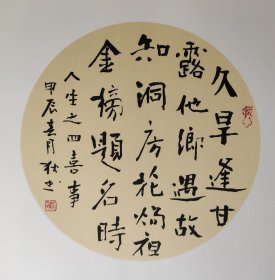 久旱逢甘
露他鄉遇故
知洞房花燭夜
金榜題名時
人生之四喜事
甲辰春月